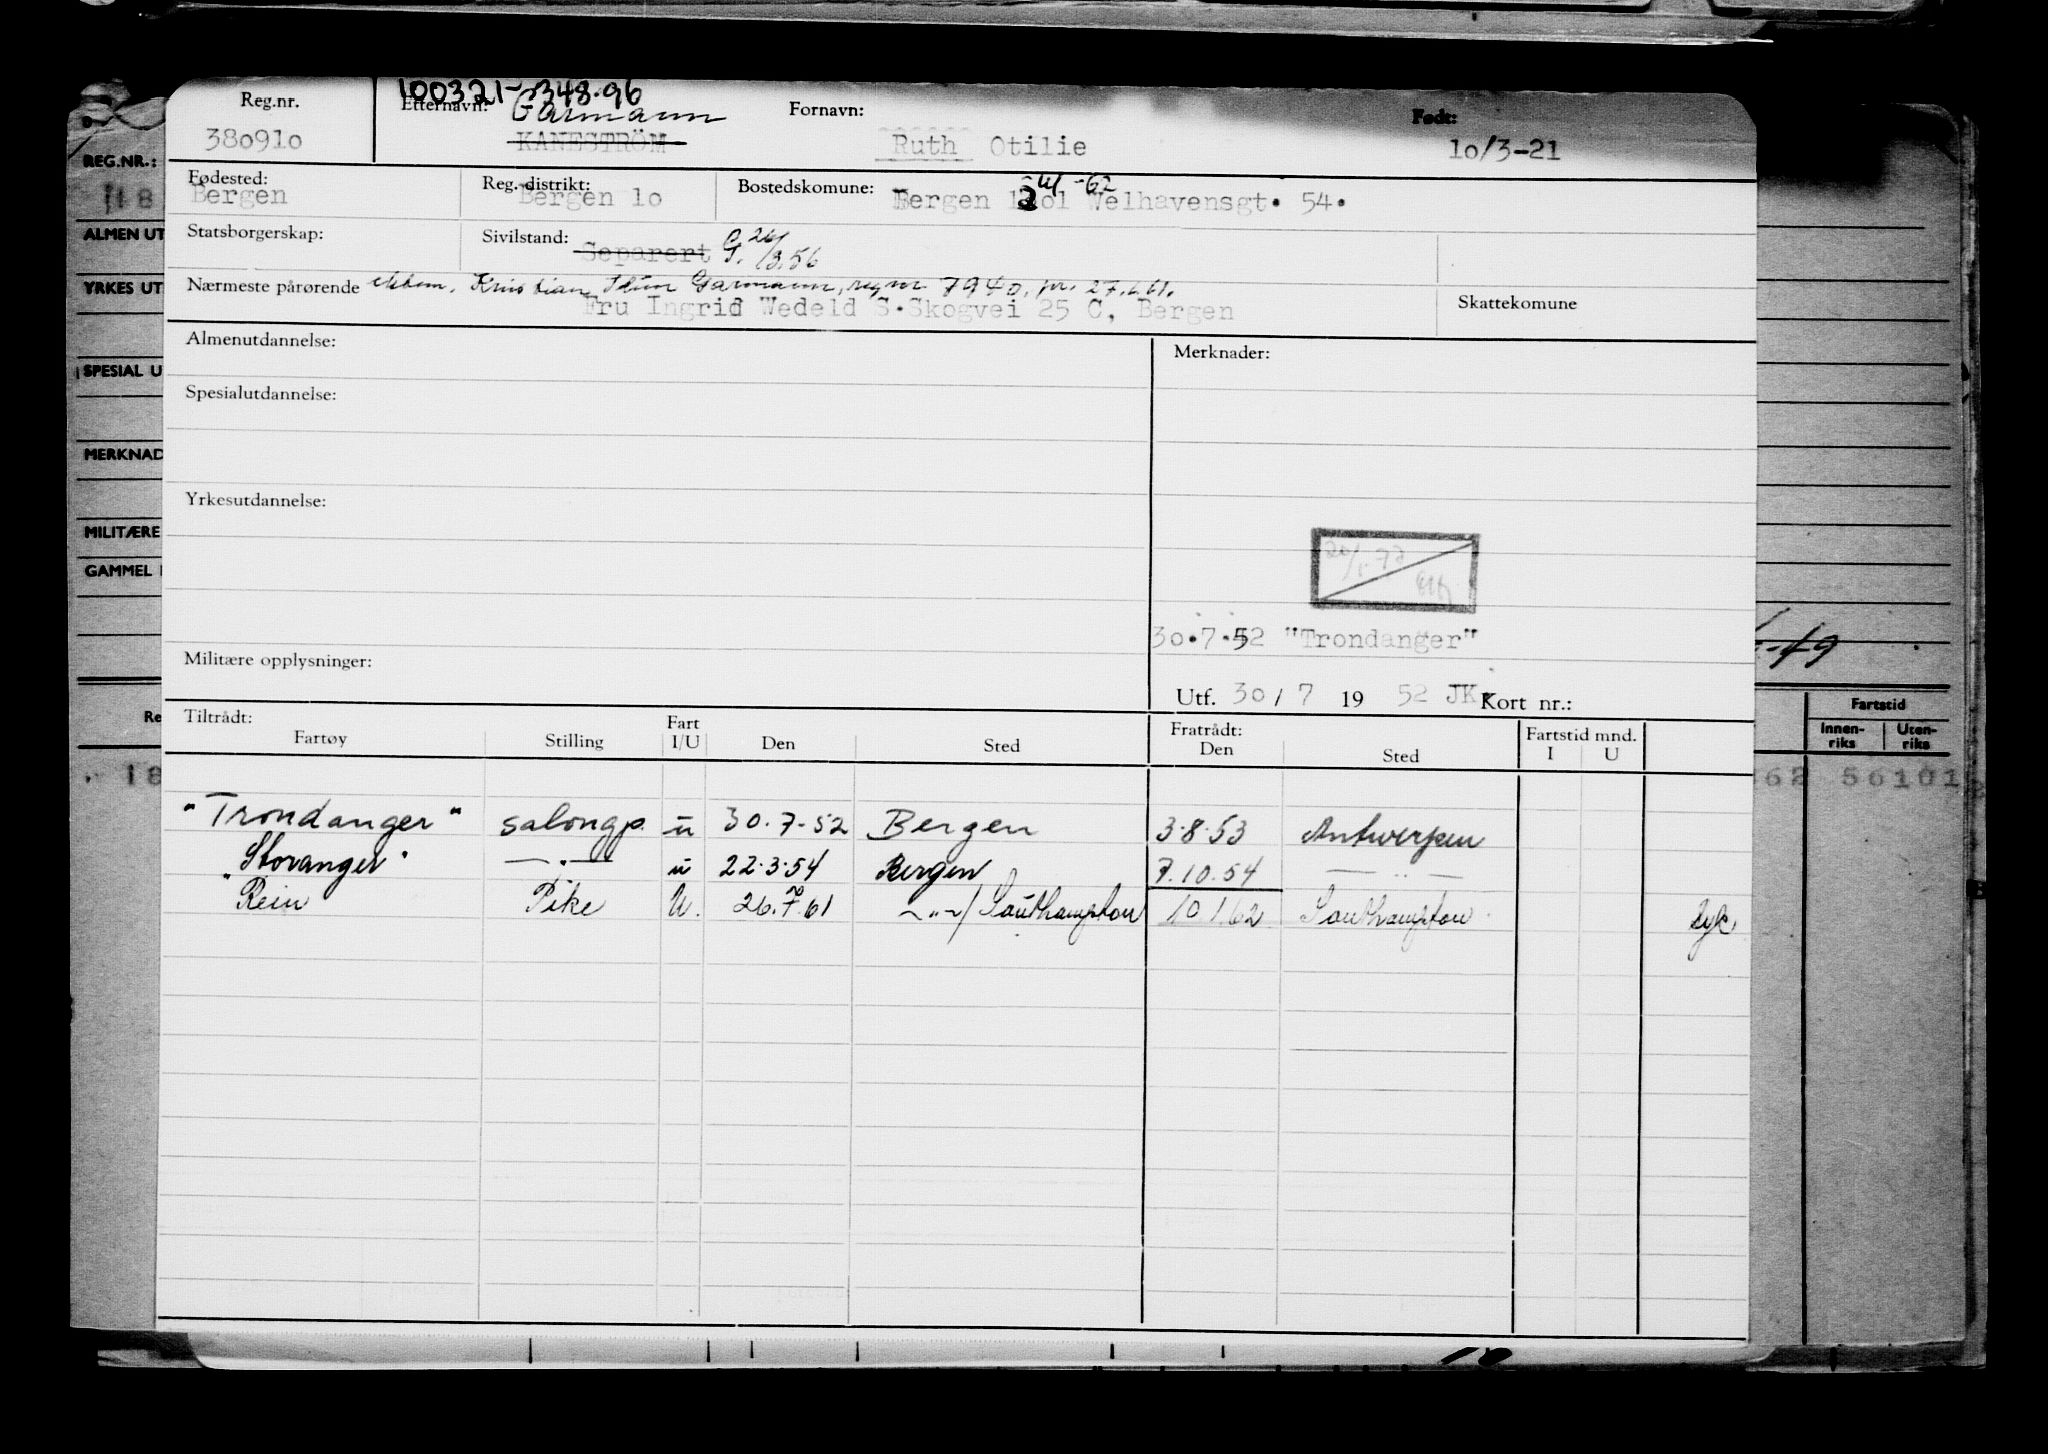 100321-348.96
Reg.nr. Etternavn: Garmann Fornavn: Født:
380910 KANESTRÖM Ruth Otilie 10/3-21
Fødested: Reg. distrikt: Bostedskomune:
Bergen Bergen 10 Bergen Welhavensgt. 54.
Statsborgerskap: Sivilstand: Separert G. 26/3.56
Nærmeste pårørende ektem. Kristian Garmann, reg nr 7940, pr. 27.6.61.
Fru Ingrid Wedeld S.Skogvei 25 C, Bergen Skattekomune
Almenutdannelse: Merknader:
Spesialutdannelse:
Yrkesutdannelse:
30.7.52 "Trondanger"
Militære opplysninger:
Utf. 30/7 19 52 JK. Kort nr.:
Tiltrådt: Fart Fratrådt: Fartstid mnd.
Fartøy Stilling I/U Den Sted Den Sted I U
"Trondanger" salongp. u 30.7-52 Bergen 3.8.53 Antwerpen
"Storanger" — " — u 22.3.54 Bergen 7.10.54 — " —
Rein Pike U. 26.7.61 — " — / Southampton 10.1.62 Southampton. syk
REG.NR.:
18
ALMEN UT
YRKES UT
SPESIAL U
MERKNAD
MILITÆRE
GAMMEL
Re
18
-49
Fartstid
Innen-riks Uten-riks
62 56101